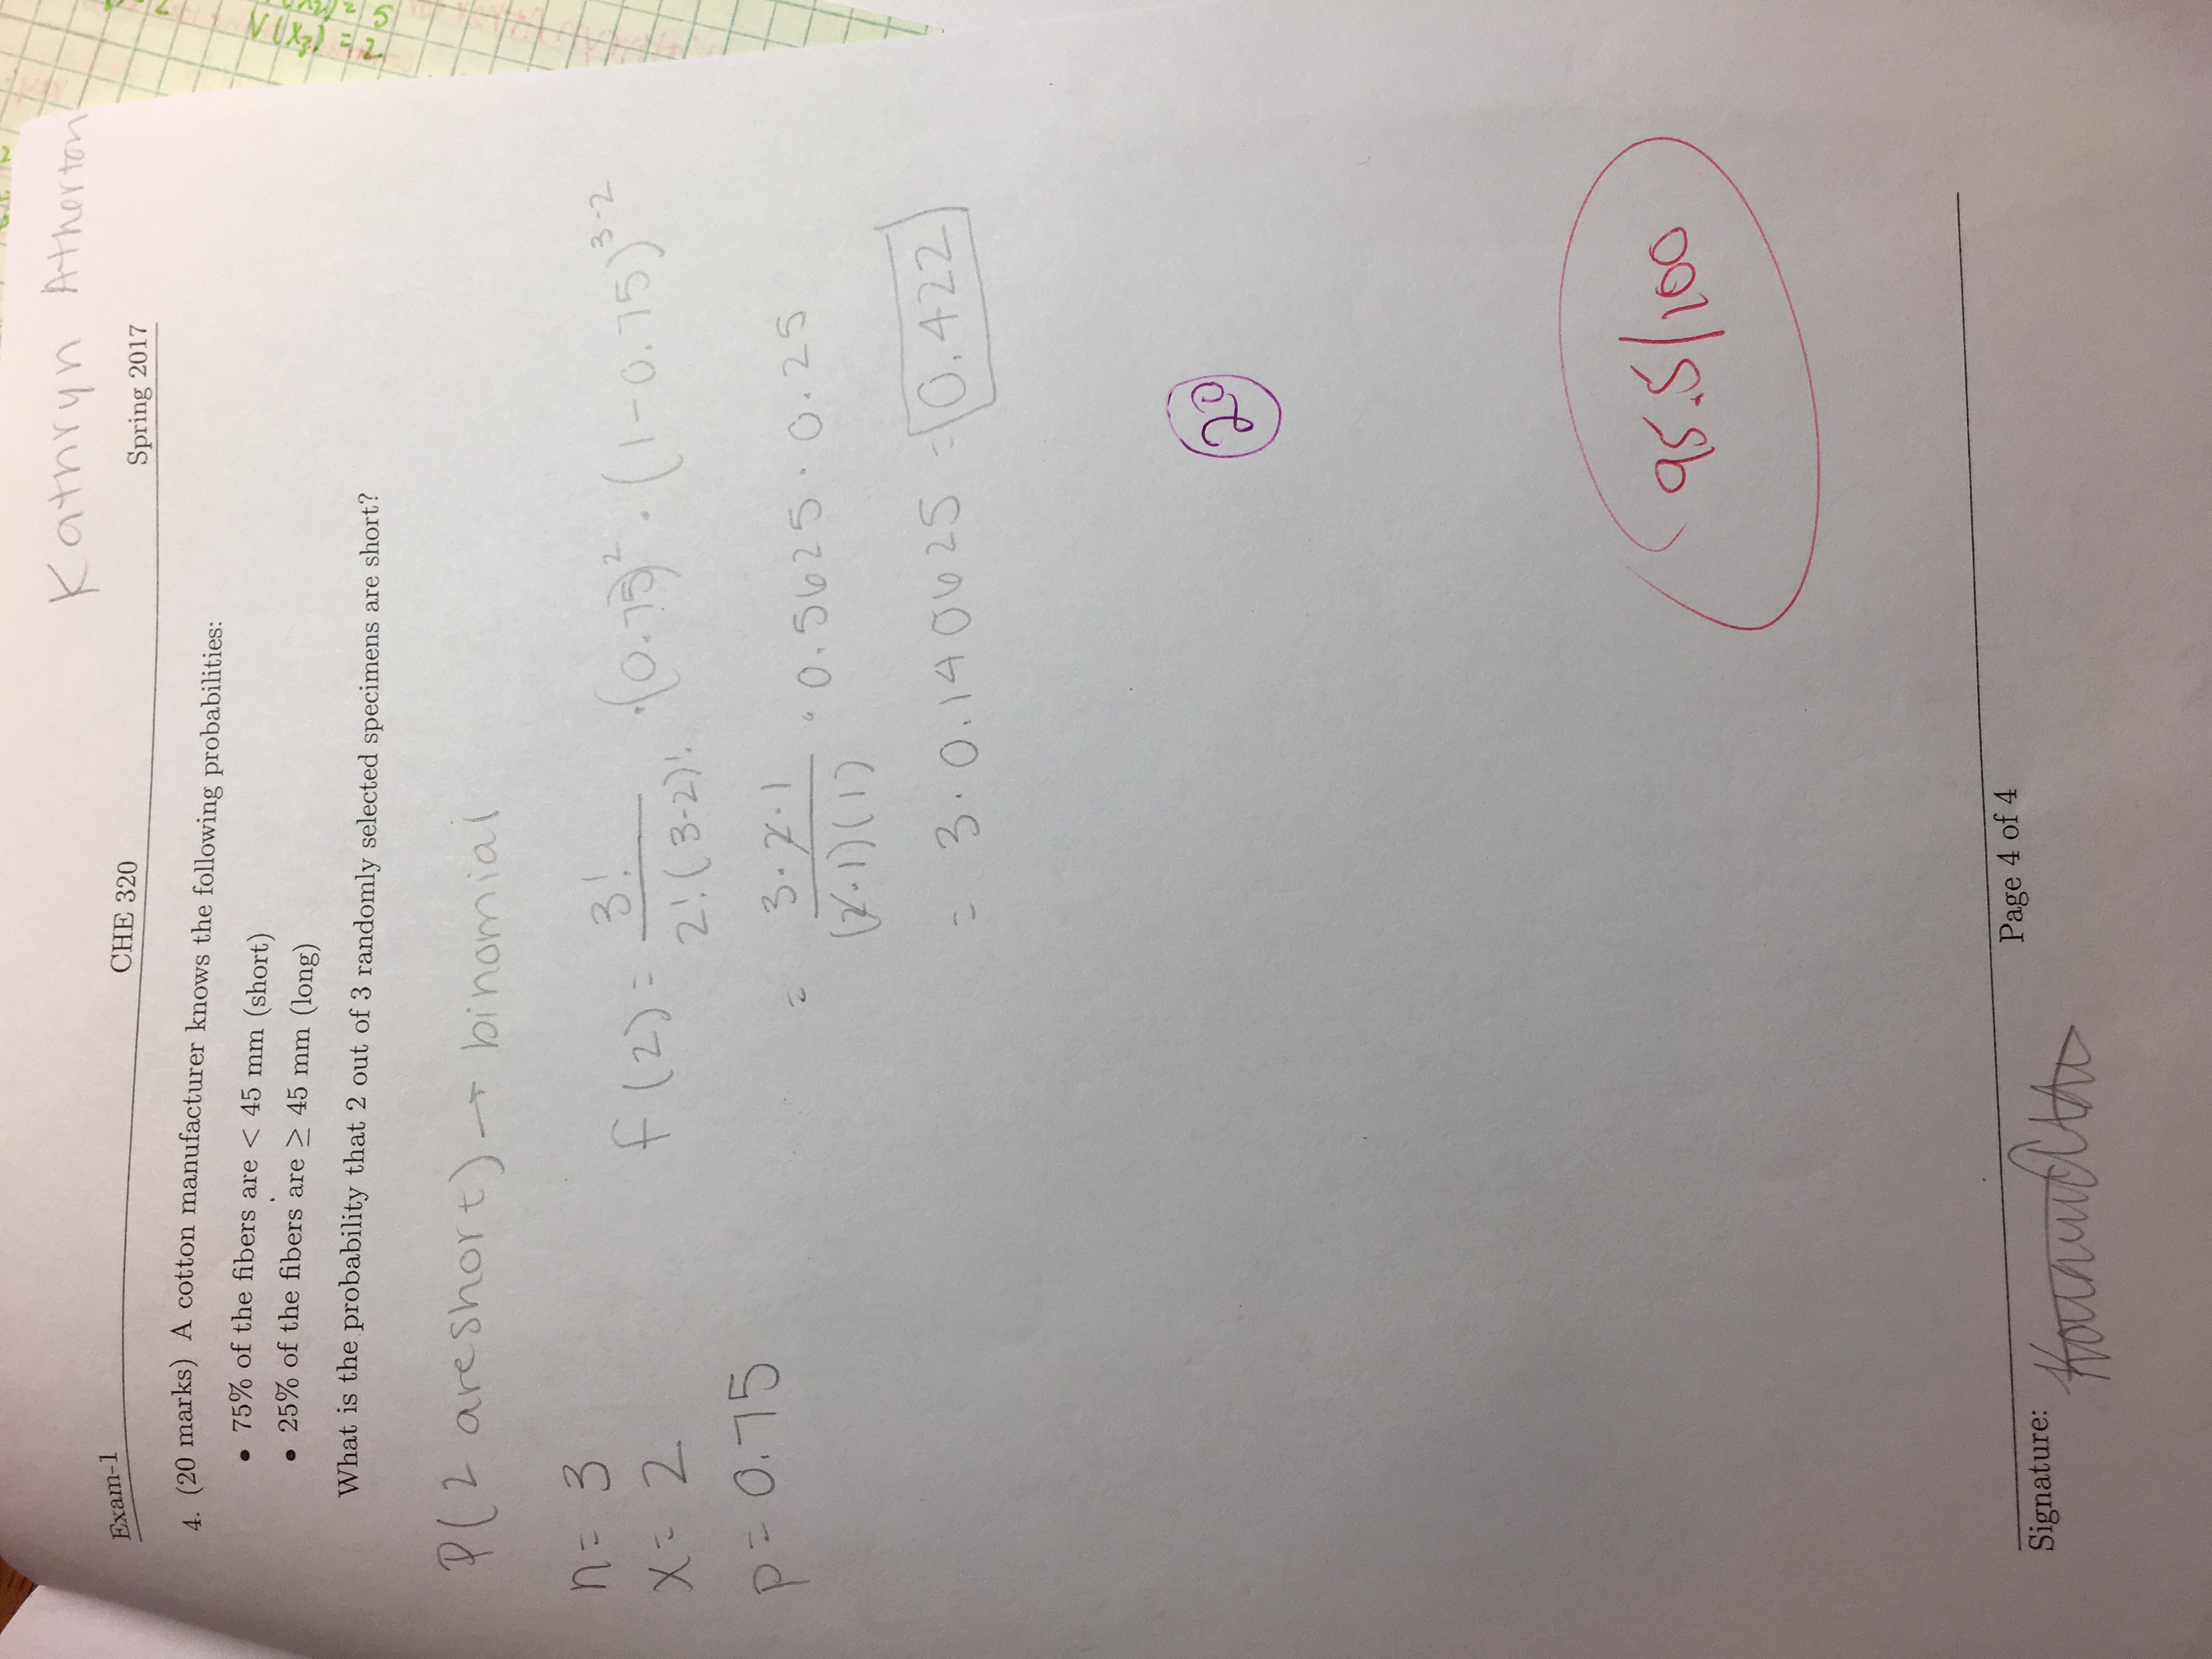 Kathryn Atherton
Exam-1 CHE 320 Spring 2017
4. (20 marks) A cotton manufacturer knows the following probabilities:
• 75% of the fibers are < 45 mm (short)
• 25% of the fibers are ≥ 45 mm (long)
What is the probability that 2 out of 3 randomly selected specimens are short?
P(2 are short) → binomial
n = 3
x = 2
p = 0.75
f(2) = 3! / 2!(3-2)! · (0.75)² · (1-0.75)³⁻²
= 3·2·1 / (2·1)(1) · 0.5625 · 0.25
= 3 · 0.140625 = 0.422
20
95.5/100
Page 4 of 4
Signature:
V(X₂) = 2